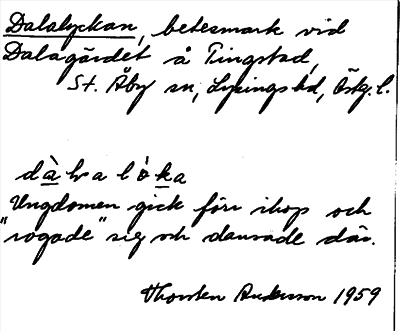 Dalalyckan, betesmark vid
Dalagärdet å Tingstad,
St. Åby sn, Lysings hd, Östg.l.
Ungdomen gick förr ihop och
"rogade" sig och dansade där.
Thorsten Andersson 1959